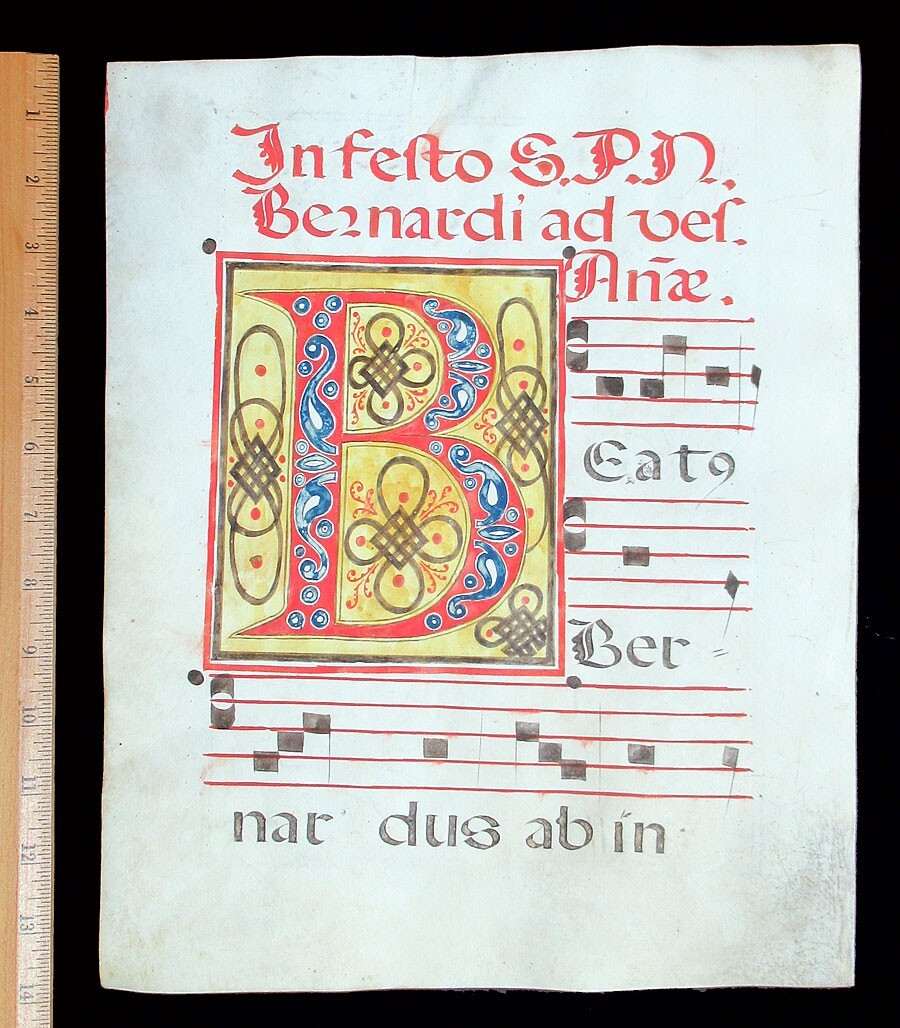 In festo S.P.N.
Bernardi ad ves.
Anæ.
B
Eatꝯ
Ber =
nar dus ab in
1
2
3
4
5
6
7
8
9
10
11
12
13
14